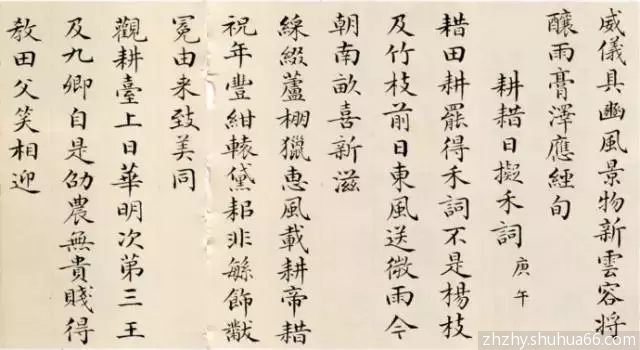 威儀具豳風景物新雲容将
釀雨膏澤應經旬
耕耤日擬禾詞 庚午
耤田耕罷得禾詞不是楊枝
及竹枝前日東風送微雨今
朝南畝喜新滋
綵綴蘆棚獵惠風載耕帝耤
祝年豐紺轅黛耜非緐飾黻
冕由来致美同
觀耕臺上日華明次第三王
及九卿自是劭農無貴賤得
教田父笑相迎
zhzhy.shuhua66.com